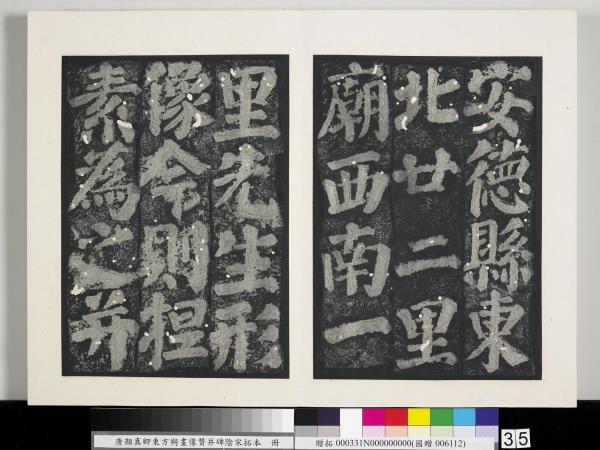 安德縣東
北廿二里
廟西南一
里先生形
像今則捏
素為之并
唐顏真卿東方朔畫像贊并碑陰宋拓本 冊
贈拓 000331N000000000(國贈 006112)
35